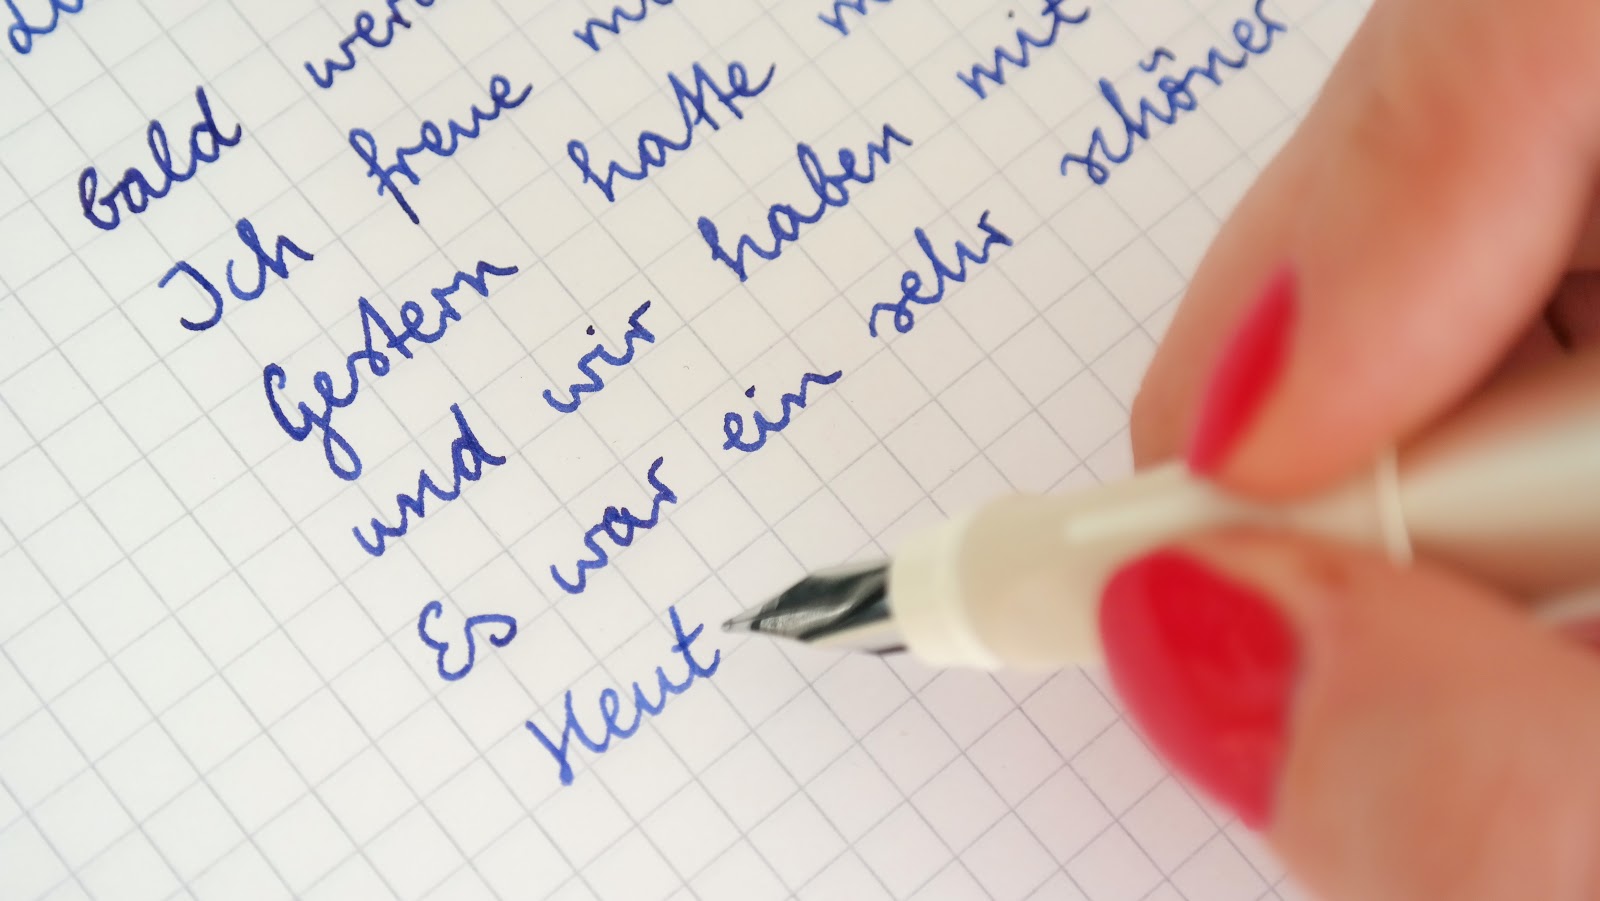 bald
Ich freue
Gestern hatte
und wir haben mit
Es war ein sehr schöner
Heut